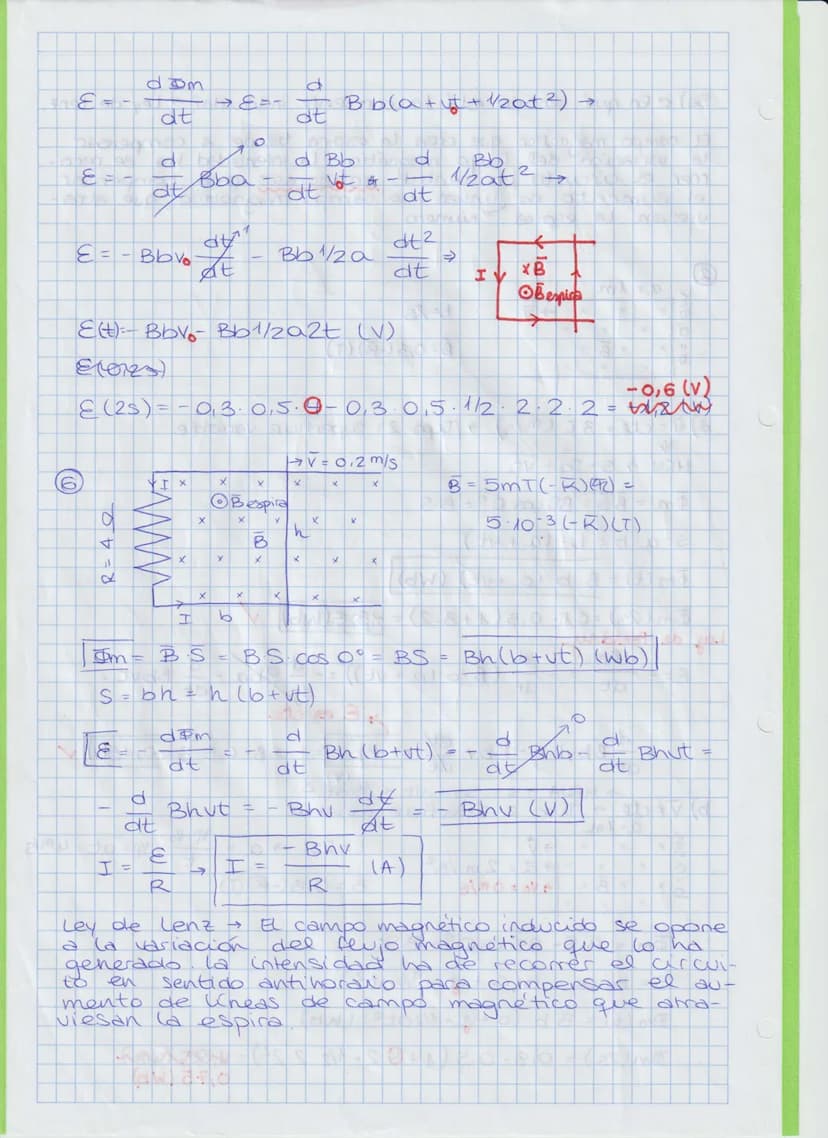 ε = - dΦm/dt → ε = - d/dt B b(a + v₀t + 1/2at²) →
ε = - d/dt Bba - d/dt Bb v₀t - d/dt Bb 1/2at² →
0
ε = - Bbv₀ dt/dt - Bb 1/2a dt²/dt ⇒
1
I x B̄
⊙ B̄ espira
ε(t) = - Bbv₀ - Bb 1/2a2t (V)
ε(2s) = - 0,3 · 0,5 · 0 - 0,3 · 0,5 · 1/2 · 2 · 2 · 2 = -0,6 (V)
⑥ → v̄ = 0.2 m/s
I x x x x x x
⊙ B̄ espira
B̄ = 5mT(-k̄)(T) =
5·10⁻³(-k̄)(T)
R = 4 Ω
B̄ h
I b
Φm = B̄·S̄ = B·S·cos 0° = BS = Bh(b+vt) (Wb)
S = bh = h(b+vt)
ε = - dΦm/dt = - d/dt Bh(b+vt) = - d/dt Bhb - d/dt Bhvt =
0
- d/dt Bhvt = - Bhv dt/dt = - Bhv (V)
I = ε/R → I = -Bhv/R (A)
Ley de Lenz → El campo magnético inducido se opone
a la variación del flujo magnético que lo ha
generado. La intensidad ha de recorrer el circui-
to en sentido antihorario para compensar el au-
mento de líneas de campo magnético que atra-
viesan la espira.